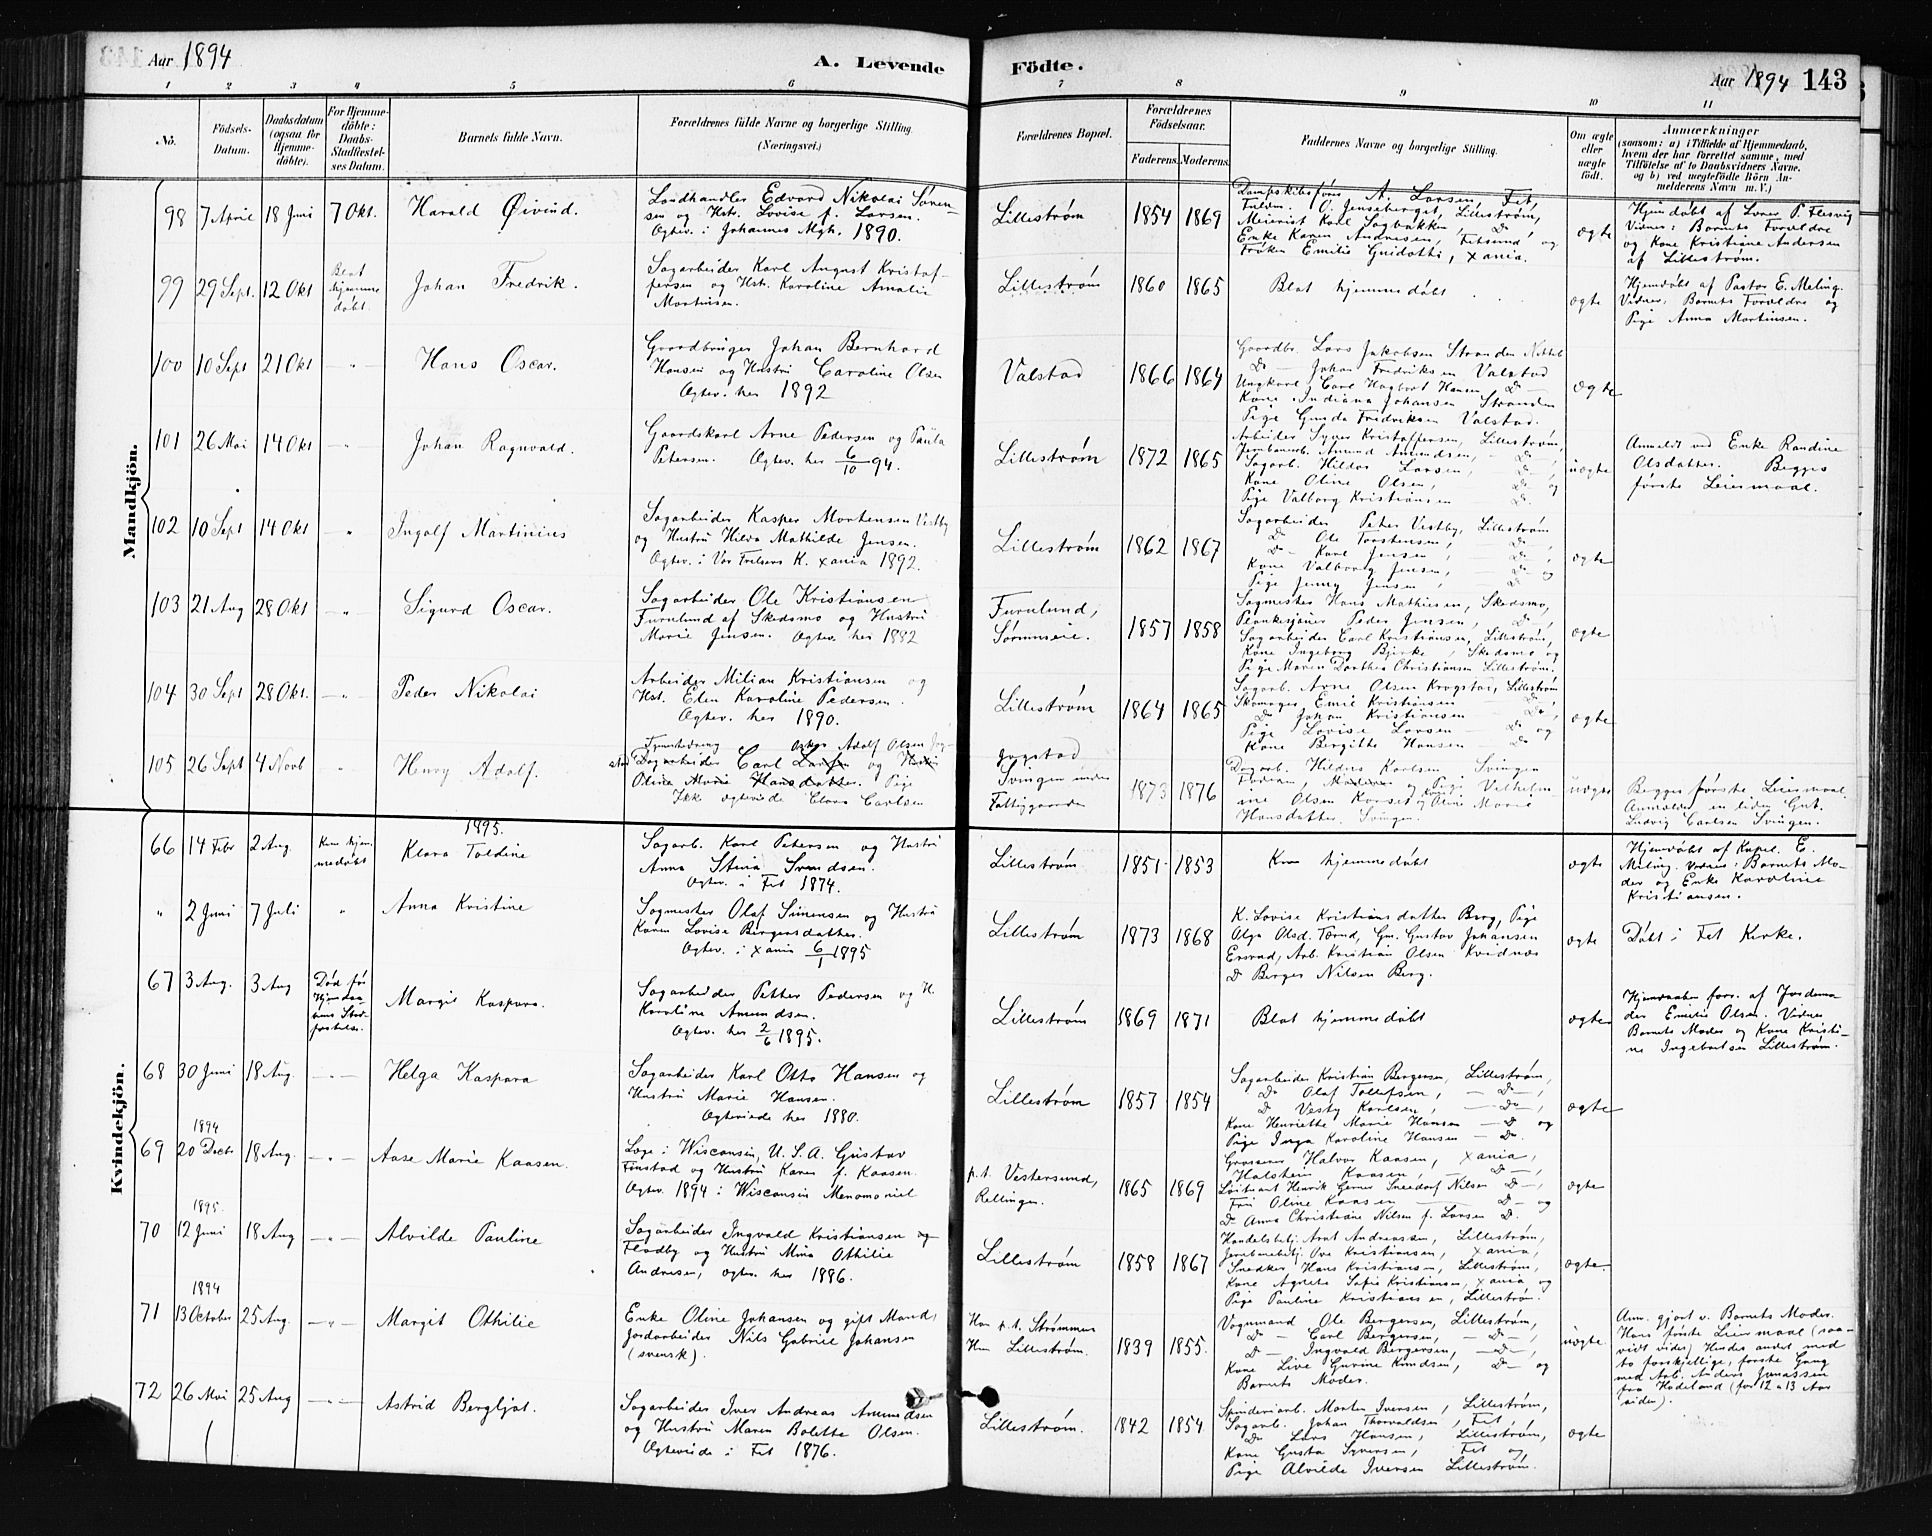 Aar 1894
A. Levende Födte.
Aar 1894 143
1 2 3 4 5 6 7 8 9 10 11
No.
Födsels-Datum.
Daabsdatum (ogsaa for Hjemme-döbte).
For Hjemme-döbte: Daabs-Stadfæstel-ses Datum.
Barnets fulde Navn.
Forældrenes fulde Navne og borgerlige Stilling. (Næringsvei.)
Forældrenes Bopæl.
Forældrenes Födselsaar.
Faderens. Moderens.
Faddernes Navne og borgerlige Stilling.
Om ægte eller uægte födt.
Anmærkninger
(saasom: a) i Tilfælde af Hjemmedaab,
hvem der har forrettet samme, med
Tilföielse af to Daabsvidners Navne.
og b) ved uægtefödte Börn An-
melderens Navn m. V.)
Mandkjön.
98 7 April 18 Juni 7 Okt. Harald Øivind.
Landhandler Edvard Nikolai Søren-
sen og Hst. Lovise f. Larsen.
Ægtev. i Johannes Mgh. 1890.
Lillestrøm 1854 1869
A. Larsen Fet,
O. Jenseberget, Lillestrøm,
Meierist Karl Sagbakken, Do
Enke Karen Andresen, Fetsund og
Frøken Emilie Guidotti, Xania.
ægte
Hjemdøbt af Lærer P. Flesvig
Vidner: Barnets Forældre
og Kone Kristiane Andersen
af Lillestrøm.
99 29 Sept. 12 Okt Blot hjemme døbt. Johan Fredrik.
Sagarbeider Karl August Kristof-
fersen og Hst. Karoline Amalie
Martinsen.
Lillestrøm 1860 1865 Blot hjemmedøbt ægte
Hjemdøbt af Pastor E. Meling.
Vidner, Barnets Forældre og
Pige Anna Martinsen.
100 10 Sept 21 Okt - " - Hans Oscar.
Gaardbruger Johan Bernhard
Hansen og Hustru Caroline Olsen
Ægtev. her 1892
Valstad 1866 1864
Gaardbr. Lars Jakobsen Stranden
Do — Johan Fredriksen Valstad
Ungkarl Carl Hagbart Hansen Do —
Kone Indiana Johansen Stranden
Pige Gunda Fredriksen Valstad.
ægte
101 26 Mai 14 Okt - " - Johan Ragnvald.
Gaardskarl Arne Pedersen og Paula
Petersen. Ægtev. her 6/10 94.
Lillestrøm 1872 1865
Arbeider Syver Kristoffersen, Lillestrøm,
Jernbanearb. Amund Amundsen, - Do -,
Sagarb. Hildor Larsen, - Do -,
Kone Oline Olsen, Do og
Pige Valborg Kristiansen Do.
uægte
Anmeldt ved Enke Randine
Olsdatter. Begges
første Leiermaal.
102 10 Sept 14 Okt - " - Ingolf Martinius
Sagarbeider Kasper Mortensen Vestby
og Hustru Hilda Mathilde Jensen.
Ægtev. i Vor Frelsers K. Xania 1892.
Lillestrøm 1862 1867
Sagarbeider Peter Vestby, Lillestrøm
Do Ole Torstensen, - Do -,
Do - Karl Jensen, - Do -,
Kone Valborg Jensen, - Do - og
Pige Jenny Jensen, Do
ægte
103 21 Aug 28 Okt - " - Sigurd Oscar.
Sagarbeider Ole Kristiansen
Furulund af Skedsmo og Hustru
Marie Jensen. Ægtev. her 1882
Furulund,
1857 1858
Sagmester Hans Mathiesen, Skedsmo,
Peder Jensen, Do,
Sagarbeider Carl Kristiansen, Lillestrøm,
Kone Ingeborg Bjerke, Skedsmo og
Pige Maren Dorthea Christiansen Lillestrøm.
ægte
104 30 Sept 28 Okt. - " - Peder Nikolai
Arbeider Milian Kristiansen og
Hst. Elen Karoline Pedersen.
Ægtev. her 1890.
Lillestrøm 1864 1865
Sagarb. Arne Olsen Krogstad, Lillestrøm
Skomager Emil Kristiansen - Do -,
Do Johan Kristiansen - Do -,
Pige Lovise Larsen - Do - og
Kone Bergitte Hansen - Do
ægte
105 26 Sept 4 Novb " Henry Adolf.
Oskar Adolf Olsen
Dagarbeider Carl Larsen og Hustru
Oline Marie Hansdatter. Pige
Ikke ægteviede Clara Carlsen
Svingen under
Fattiggaarden
1873 1876
Dagarb. Hildus Karlsen Svingen
Faderen, Moderen og Pige Vilhelm-
ine Olsen og Oline Marie
Hansdatter Svingen.
uægte
Begges første Leiermaal.
Anmelder en liden Gut.
Ludvig Carlsen Svingen.
Kvindekjön.
1895.
66 14 Febr 2 Aug. Kun hjem-medøbt Klara Toldine
Sagarb. Karl Petersen og Hustru
Anna Stina Svendsen.
Ægtev. i Fet 1874.
Lillestrøm 1851 1853 Kun hjemmedøbt ægte
Hjemdøbt af Kapel. E.
Meling. Vidner: Barnets Mo-
der og Enke Karoline
Kristiansen.
" 2 Juni 7 Juli " Anna Kristine
Sagmester Olaf Simensen og Hustru
Karen Lovise Birgersdatter.
Ægtev. i Xania 6/1 1895
Lillestrøm 1873 1868
K. Lovise Kristiansdatter Berg, Pige
Olga Olsd. Tørud, Gm. Gustav Johansen
Ersrud, Arb. Kristian Olsen Kvidnæs
Do Berger Nilsen Berg.
ægte Døbt i Fet Kirke.
67 3 Aug. 3 Aug Død før Hjemdaa-bens Stad-fæstelse. Margit Kaspara.
Sagarbeider Petter Pedersen og H.
Karoline Amundsen.
Ægtev. her 2/6 1895.
Lillestrøm 1869 1871 Blot hjemmedøbt ægte
Hjemdaaben forr. af Jordemo-
der Emilie Olsen. Vidner
Barnets Moder og Kone Kristi-
ne Ingebretsen Lillestrøm.
68 30 Juni 18 Aug. - " - Helga Kaspara
Sagarbeider Karl Otto Hansen og
Hustru Marie Hansen.
Ægteviede her 1880.
Lillestrøm 1857 1854
Sagarbeider Kristian Bergersen, Lillestrøm,
Do Olaf Tollefsen, - Do -,
Do Vesty Karlsen, - Do -,
Kone Henriette Marie Hansen - Do og
Pige Inga Karoline Hansen - Do.
ægte
1894
69 20 Decbr 18 Aug. - " - Aase Marie Kaasen.
Læge i Wisconsin, U.S.A. Gustav
Finstad og Hustru Karen f. Kaasen.
Ægtev. 1894 i Wisconsin Menomoniel
p.t. Vestersund,
Rellingen.
1865 1869
Grosserer Halvor Kaasen, Xania,
Halstein Kaasen, - Do -,
Løitnant Henrik Gerner Sneedorf Nilsen Do -,
Fru Oline Kaasen - Do - og
Do Anna Christiane Nilsen f. Larsen Do.
ægte
1895.
70 12 Juni 18 Aug - " - Alvilde Pauline
Sagarbeider Ingvald Kristiansen
Flodby og Hustru Mina Othilie
Andresen, Ægtev. her 1886.
Lillestrøm 1858 1867
Handelsbetj. Arnt Andreassen, Lillestrøm,
Jernbanebetj. Ove Kristiansen, Xania,
Snedker Hans Kristiansen, Lillestrøm,
Kone Agnete Sofie Kristiansen, Xania og
Pige Pauline Kristiansen, Lillestrøm.
ægte.
1894
71 13 October 25 Aug. - " - Margit Othilie
Enke Oline Johansen og gift Mand,
Jordarbeider Nils Gabriel Johansen
(svensk).
Han p.t. Strømmen
Hun Lillestrøm.
1839 1855.
Vognmand Ole Bergersen, Lillestrøm,
Do - Carl Bergersen, - Do -,
Do - Ingvald Bergersen, - Do -,
Kone Live Gurine Knudsen, Do - og
Barnets Moder.
uægte
Anm. gjort v. Barnets Moder.
Hans første Leiermaal (saa-
vidt vides) Hendes andet med
to forskjellige, første Gang
med Arb. Anders Jonassen
fra Hødeland (for 12 a 13 Aar
siden).
72 26 Mai 25 Aug - " - Astrid Bergljot.
Sagarbeider Iver Andreas Amundsen
og Hustru Maren Bolette Olsen.
Ægteviede i Fet 1876.
Lillestrøm. 1842 1854
Spinderiarb. Morten Iversen, Lillestrøm,
Sagarb. Johan Thorvaldsen, Fet,
Do Lars Hansen, Lillestrøm,
Kone Gusta Syversen, Fet og
Pige Alvilde Iversen Lillestrøm.
ægte